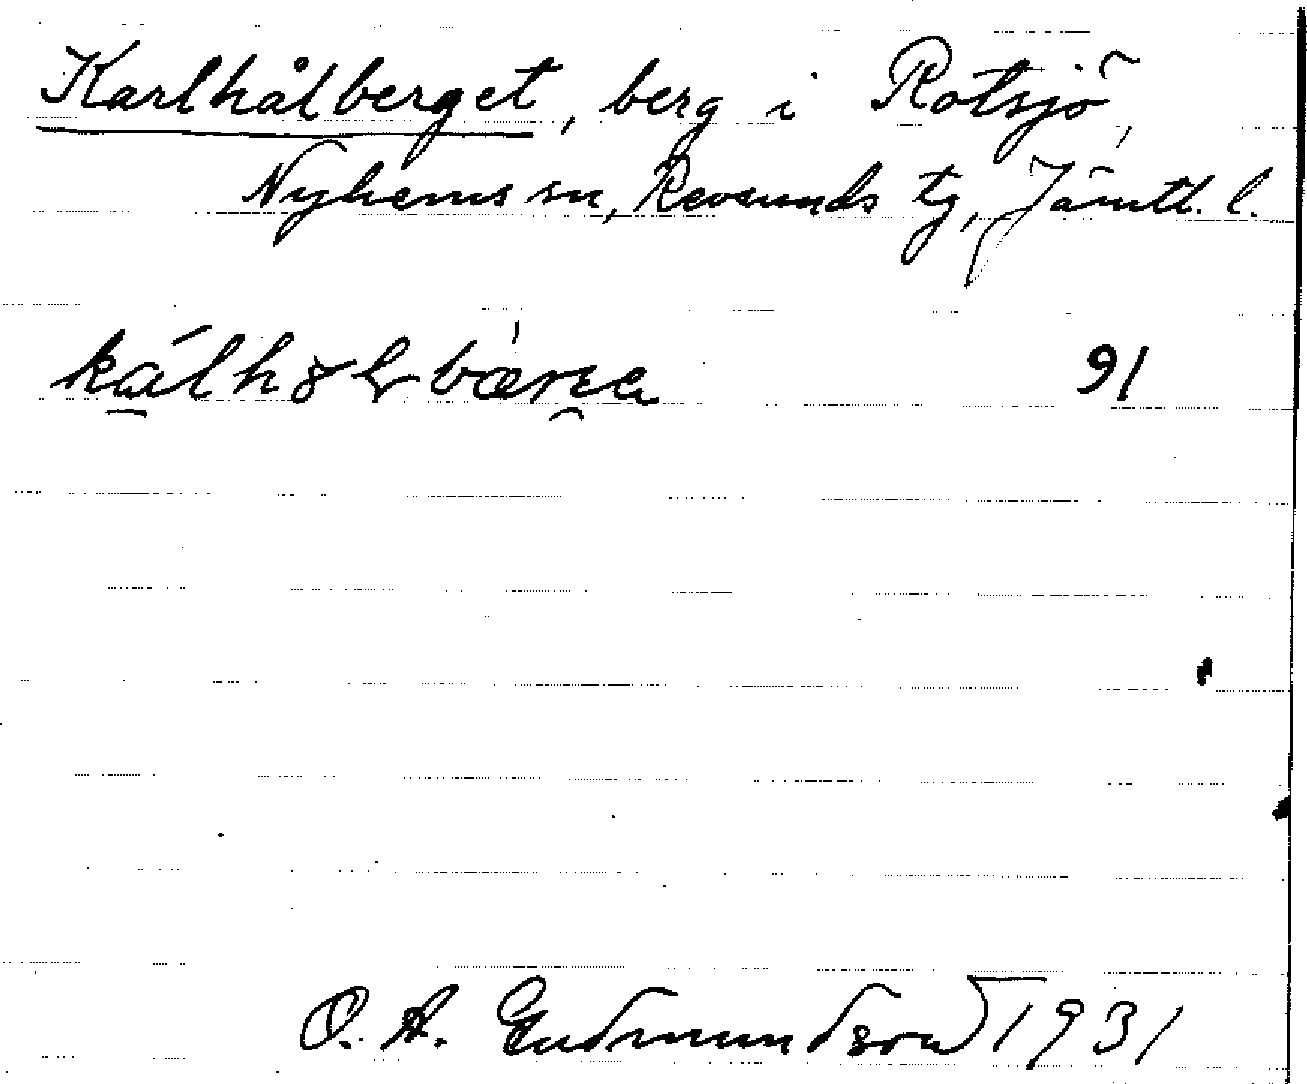 Karlhålberget, berg i Rotsjö,
Nyhems sn, Revsunds tg, Jämtl. l.
91
O. A. Gudmundsson 1931